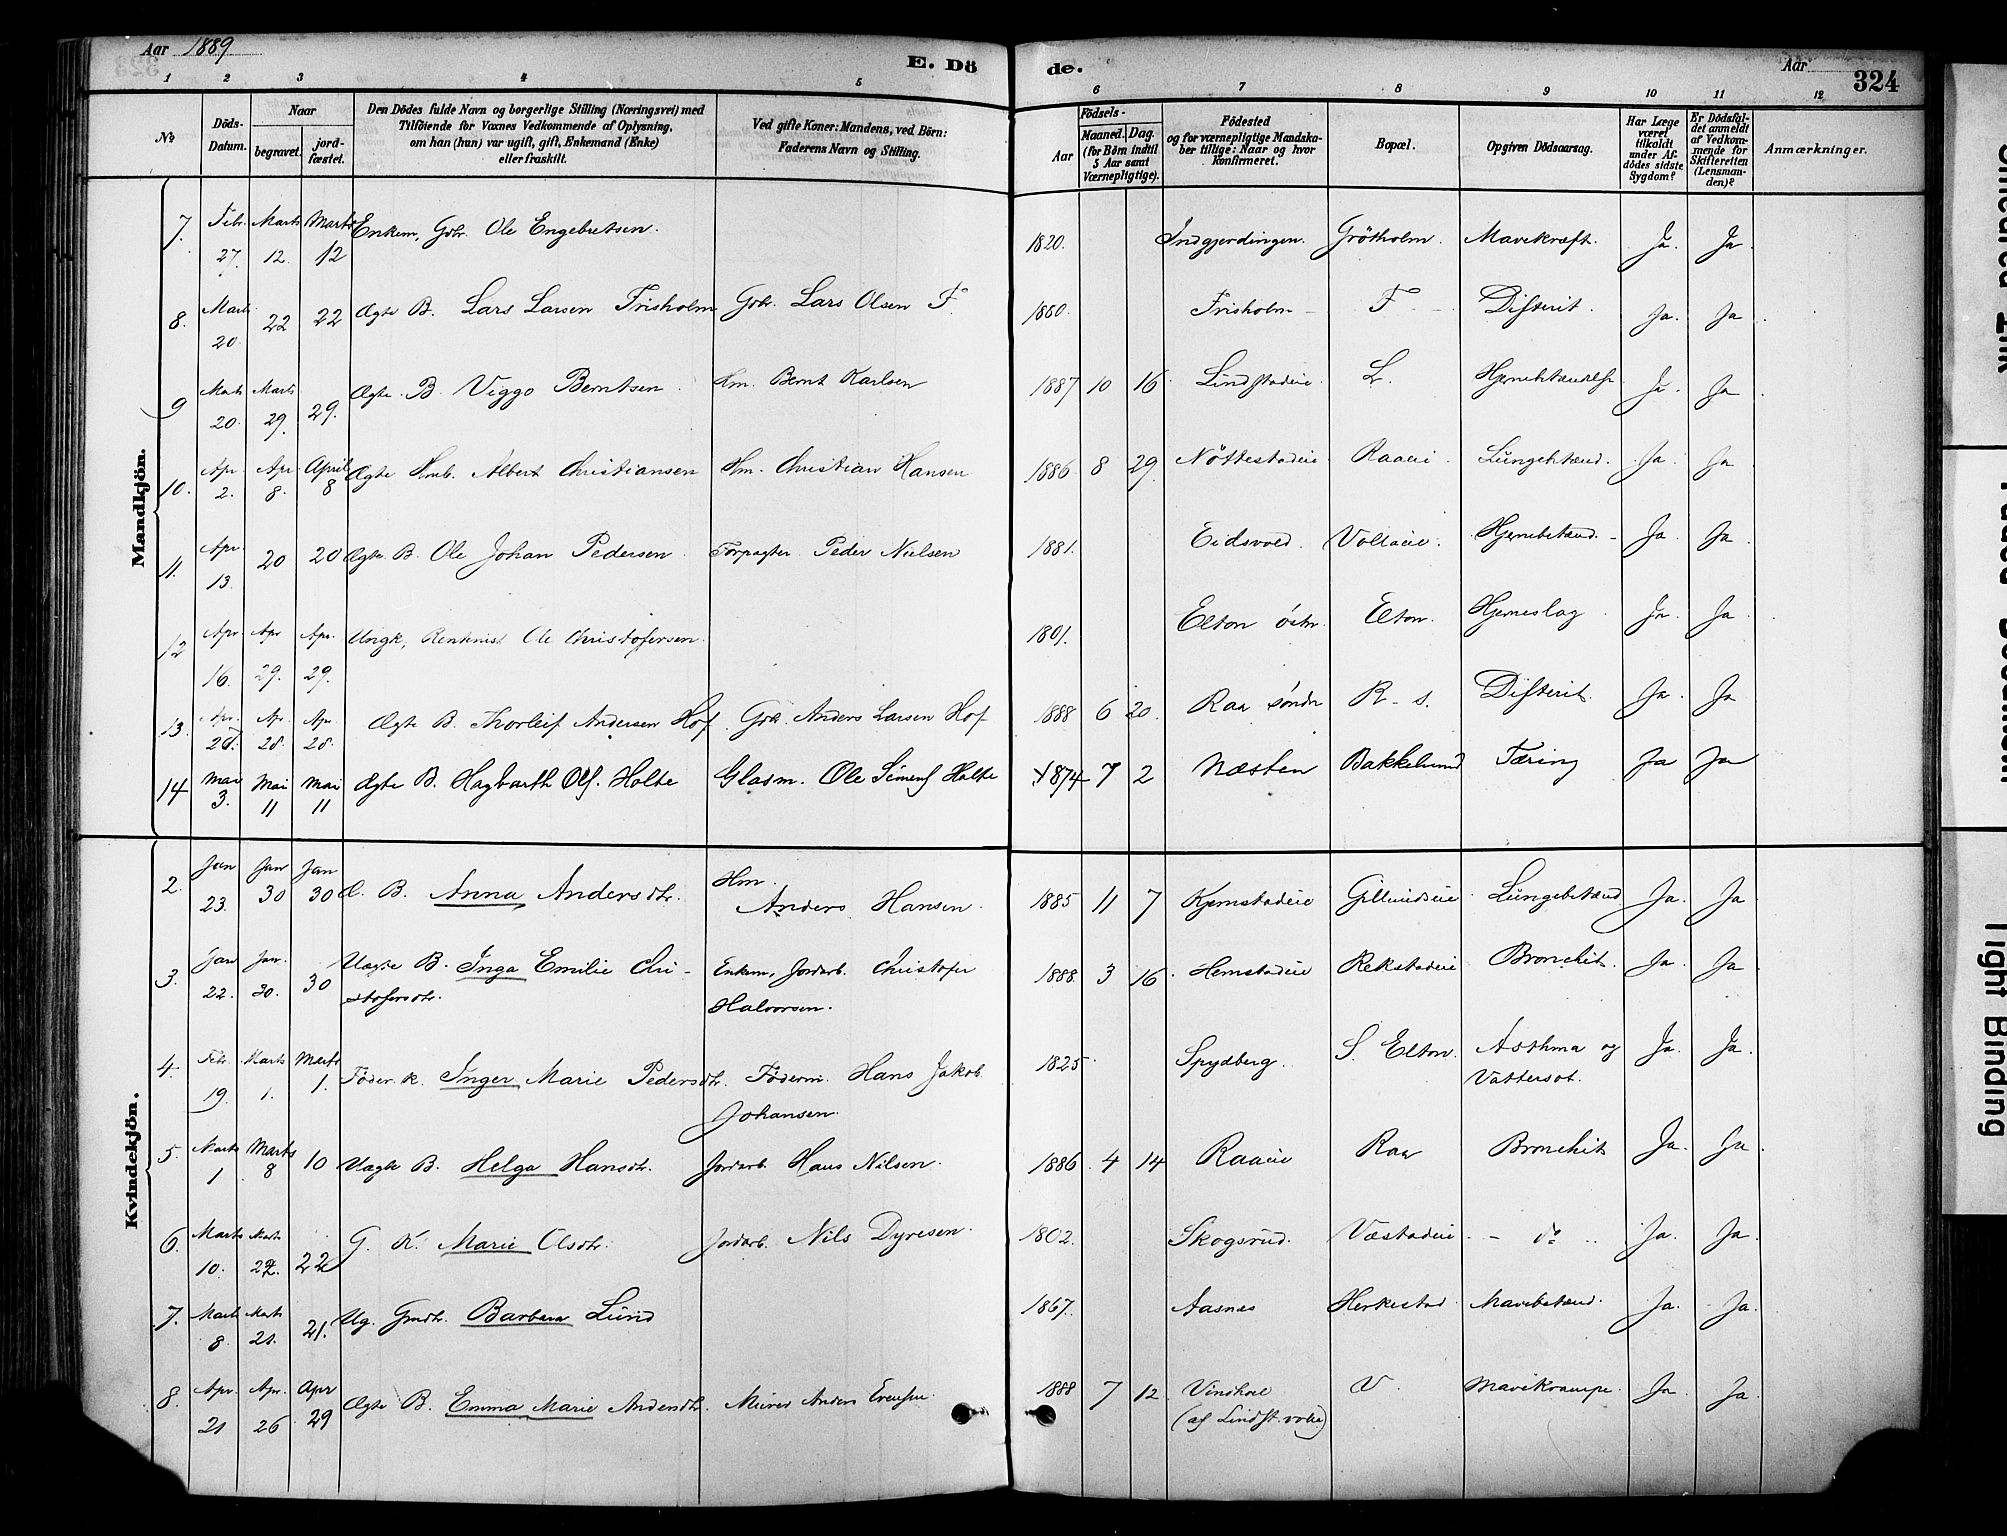 Aar 1889
E. Dö
de.
Aar
324
1 2 3 4 5 6 7 8 9 10 11 12
No
Döds-Datum.
Naar
begravet.
jord-fæstet.
Den Dödes fulde Navn og borgerlige Stilling (Næringsvei) med
Tilföiende for Voxnes Vedkommende af Oplysning,
om han (hun) var ugift, gift, Enkemand (Enke)
eller fraskilt.
Ved gifte Koner: Mandens, ved Börn:
Faderens Navn og Stilling.
Födsels-
Aar
Maaned. Dag.
(for Börn indtil
5 Aar samt
Værnepligtige).
Födested
og for værnepligtige Mandska-
ber tillige: Naar og hvor
Konfirmeret.
Bopæl.
Opgiven Dödsaarsag.
Har Læge
været
tilkaldt
under Af-
dödes sidste
Sygdom?
Er Dödsfal-
det anmeldt
af Vedkom-
mende for
Skifteretten
(Lensman-
den)?
Anmærkninger.
Mandkjön.
7. Febr. 27. Marts 12. Marts 12 Enkem, Gbr. Ole Engebretsen. 1820. Indgjerdingen. Grötholm. Mavekræft. Ja. Ja
8. Marts 20. 22 22 Ægte B. Lars Larsen Frisholm Gbr. Lars Olsen F. 1880. Frisholm F Difterit. Ja. Ja
9 Marts 20. Marts 29. 29. Ægte B. Viggo Berntsen. Hm. Bernt Karlsen 1887 10 16 Lindstadeie L. Ja. Ja
10. Apr. 2. Apr 8. April 8 Ægte Hmb. Albert Christiansen Hm. Christian Hansen 1886 8 29. Nöttestadeie Raaeie Lungebtænd. Ja. Ja
11. Apr. 13. 20 20 Ægte B. Ole Johan Pedersen. Forpagter Peder Nielsen 1881. Eidsvold. Vollaeie. Hjernebetænd. Ja Ja.
12 Apr. 16. Apr 29. Apr. 29. Ungk, Rentenist Ole Christofersen. 1801. Elton östr. Elton. Hjerneslag Ja Ja.
13. Apr. 20. Apr. 28. Apr. 28. Ægte B. Thorleif Andersen Hof. Gbr. Anders Larsen Hof. 1888 6 20. Raa söndr R. s. Difterit. Ja. Ja
14 Mai 3. Mai 11 Mai 11 Ægte B. Hagbarth Ols. Holte Glasm. Ole Simens Holte 1874 7 2 Næsten Bakkelund Tæring Ja Ja
Kvindekjön.
2. Jan 23. Jan 30 Jan 30 Æ. B. Anna Andersdtr. Hm.
Anders Hansen. 1885 11 7 Kjernstadeie Gillundseie Lungebetænd Ja. Ja
3. Jan 22. Jan. 30. 30 Uægte B. Inga Emilie Chri- Enkem, Jordarb. Christofer 1888. 3 16. Hemstadeie Rekstadeie Bronchit. Ja. Ja
stofersdtr. Halvorsen.
4. Febr. 19. Marts 1. Marts 1. Föder. k. Inger Marie Pedersdtr. Föderm. Hans Jakob 1825 Spydberg. S. Elton. Asthma og Ja. Ja.
Johansen. Vattersot.
5. Marts 1 Marts 8 10 Uægte B. Helga Hansdtr. Jordarb. Hans Nilsen. 1886. 4 14 Raaeie Raa Bronchit Ja. Ja.
6. Marts 10. Marts 22. 22 G. K. Marie Olsdtr. Jordarb. Nils Dyresen. 1802. Skogsrud. Væstadeie - do Ja. Ja.
7. Marts 8 Marts 21. 21. Ug. Gmdtr. Barbara Lund 1867. Aasnes Herkestad Mavebetænd. Ja. Ja.
8. Apr. 21 Apr. 26 Apr 29 Ægte B. Emma Marie Andersdtr. Murer Anders Evensen. 1888 7 12 V. Mavekrampe. Ja. Ja.
Tight Binding